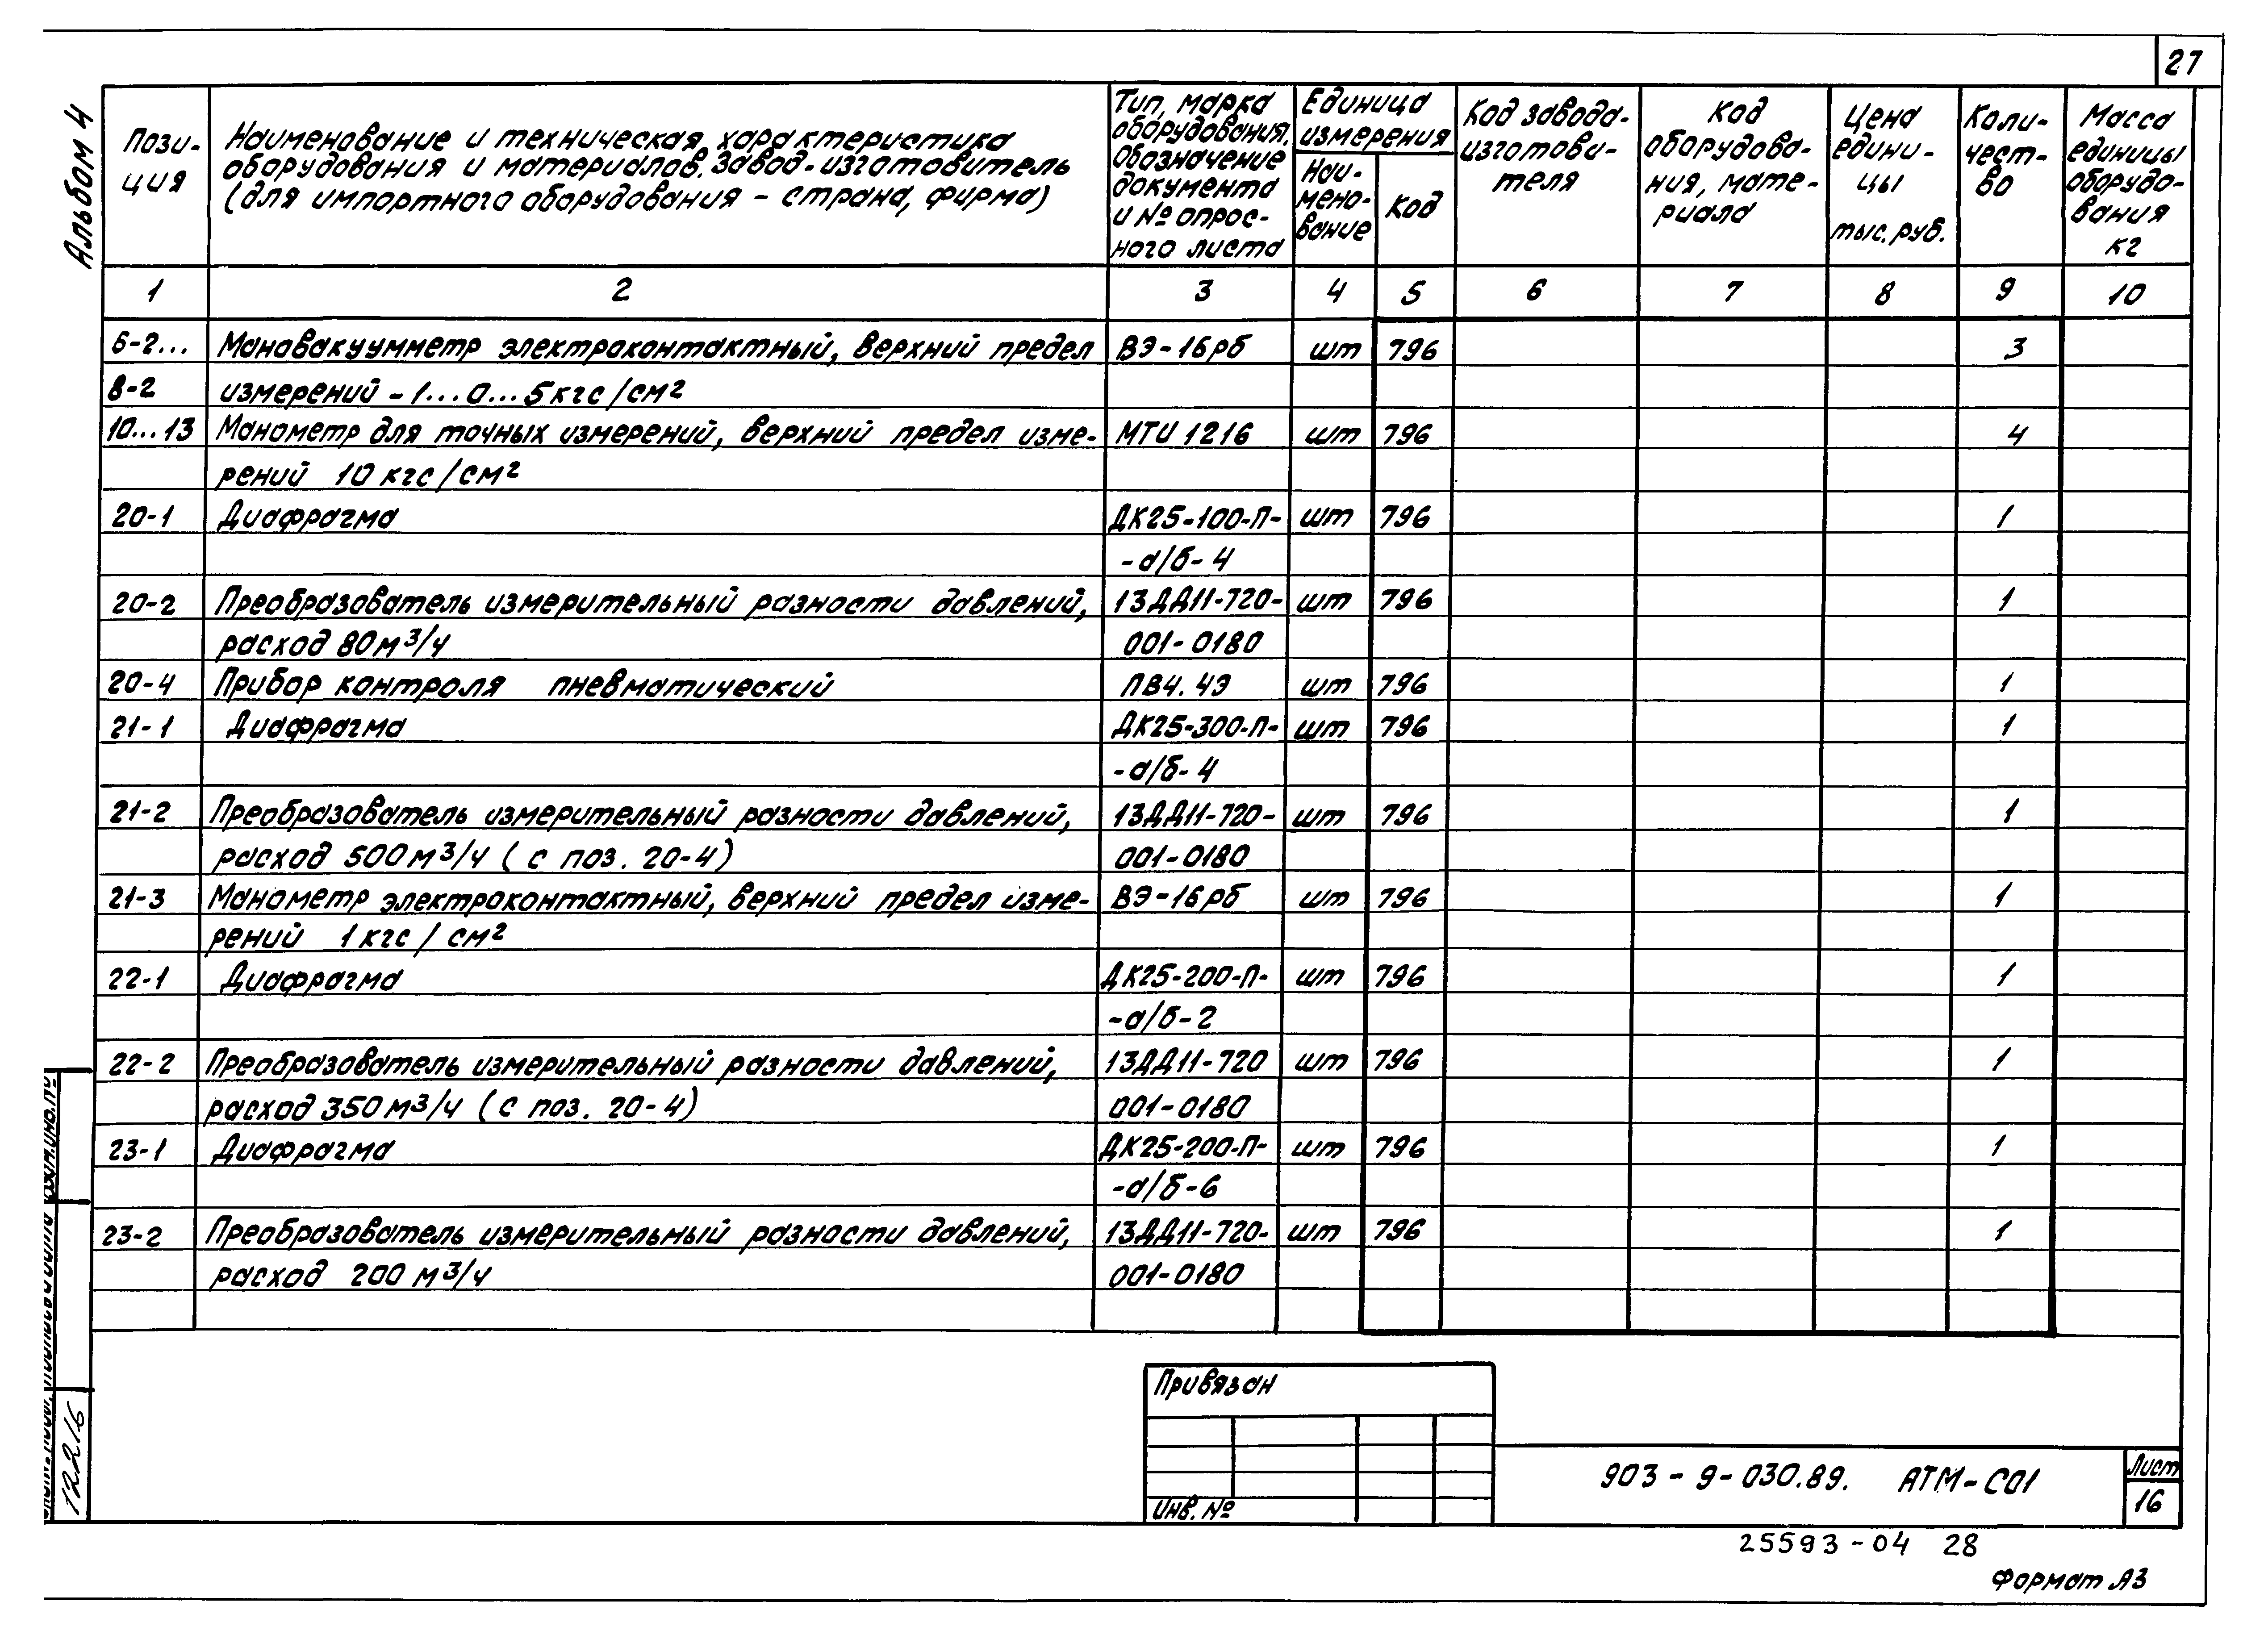 27
Альбом 4
Пози-
ция
Наименование и техническая характеристика
оборудования и материалов. Завод-изготовитель
(для импортного оборудования – страна, фирма)
Тип, марка
оборудования.
Обозначение
документа
и № опрос-
ного листа
Единица
измерения
Наи-
мено-
вание
Код
Код завода-
изготови-
теля
Код
оборудова-
ния, мате-
риала
Цена
едини-
цы
тыс. руб.
Коли-
чест-
во
Масса
единицы
оборудо-
вания
кг
1 2 3 4 5 6 7 8 9 10
6-2... Мановакуумметр электроконтактный, верхний предел ВЭ-16рб шт 796 3
8-2 измерений -1...0...5 кгс/см²
10...13 Манометр для точных измерений, верхний предел изме- МТИ 1216 шт 796 4
рений 10 кгс/см²
20-1 Диафрагма ДК25-100-П- шт 796 1
-а/б-4
20-2 Преобразователь измерительный разности давлений, 13ДД11-720- шт 796 1
расход 80м³/ч 001-0180
20-4 Прибор контроля пневматический ПВ4.4Э шт 796 1
21-1 Диафрагма ДК25-300-П- шт 796 1
-а/б-4
21-2 Преобразователь измерительный разности давлений, 13ДД11-720- шт 796 1
расход 500м³/ч (с поз. 20-4) 001-0180
21-3 Манометр электроконтактный, верхний предел изме- ВЭ-16рб шт 796 1
рений 1 кгс/см²
22-1 Диафрагма ДК25-200-П- шт 796 1
-а/б-2
22-2 Преобразователь измерительный разности давлений, 13ДД11-720 шт 796 1
расход 350м³/ч (с поз. 20-4) 001-0180
23-1 Диафрагма ДК25-200-П- шт 796 1
-а/б-6
23-2 Преобразователь измерительный разности давлений, 13ДД11-720- шт 796 1
расход 200 м³/ч 001-0180
12216
Привязан
Инв. №
903-9-030.89. АТМ-С01
Лист
16
25593-04 28
Формат А3